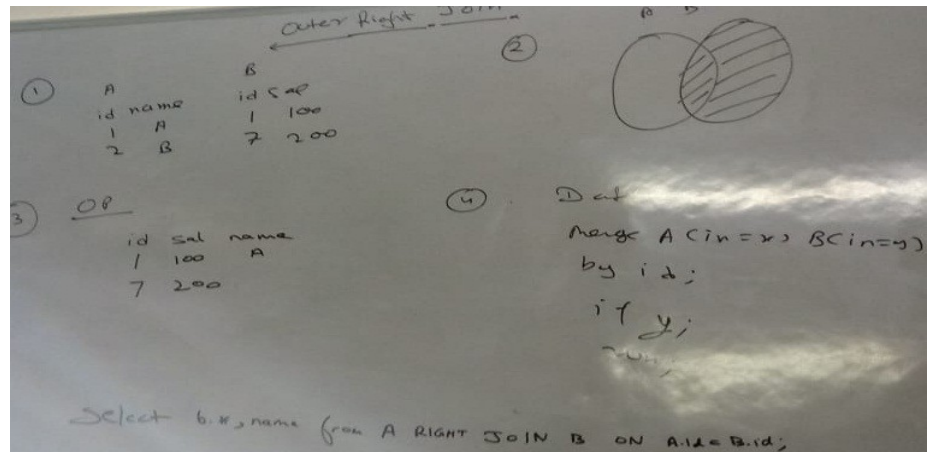 Outer Right Join
①
A
id name
1 A
2 B
B
id sal
1 100
7 200
②
③ OP
id sal name
1 100 A
7 200
④
Merge A (in=x) B(in=y)
by id;
if y;
run;
Select b.*, name from A RIGHT JOIN B ON A.id = B.id;